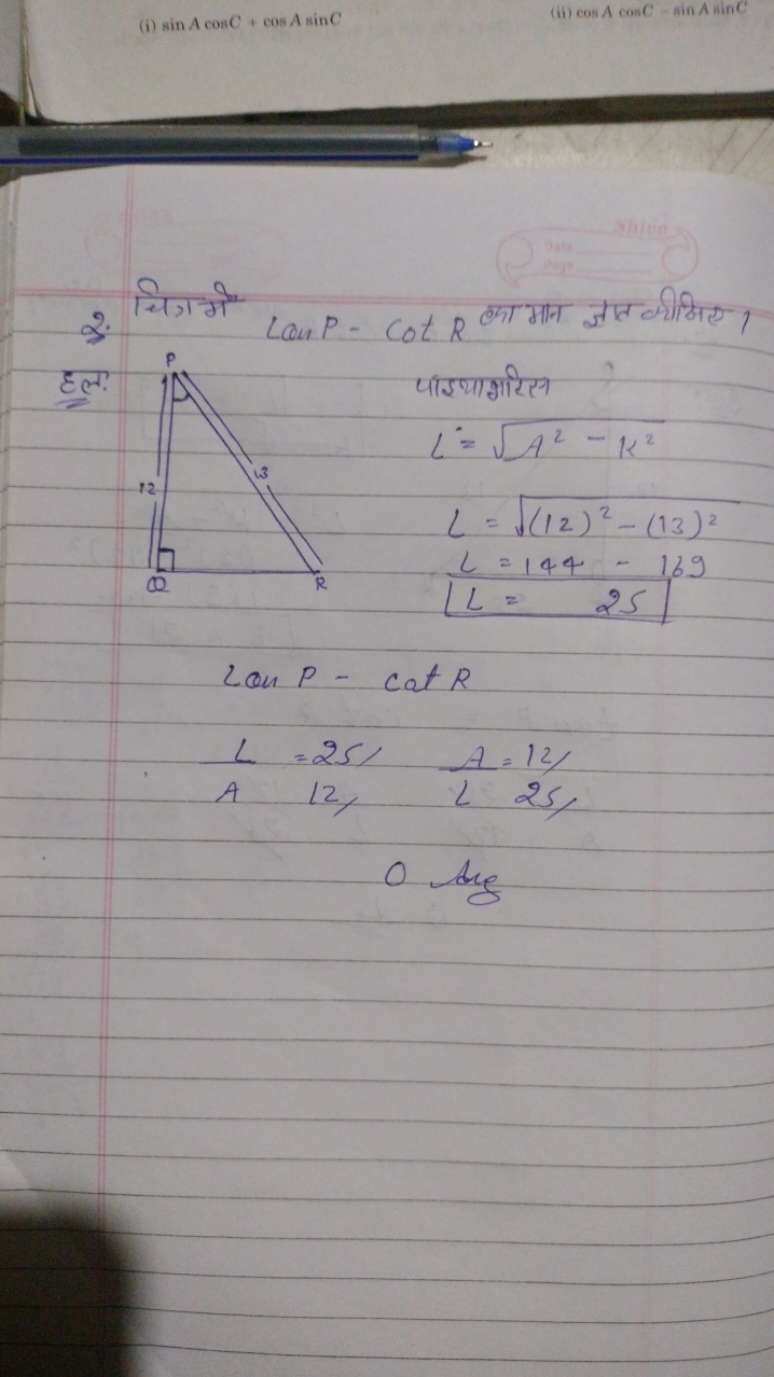 (i) sin A cosC + cos A sinC
(ii) cos A cosC − sin A sinC
Shivn
Date
Page
2. चित्र में tan P - cot R का मान ज्ञात कीजिए।
हल:
P
12
13
Q
R
पाइथागोरस
L = √A² - K²
L = √(12)² - (13)²
L = 144 - 169
L = 25
tan P - cot R
L = 25 A = 12
A 12 L 25
0 Ans